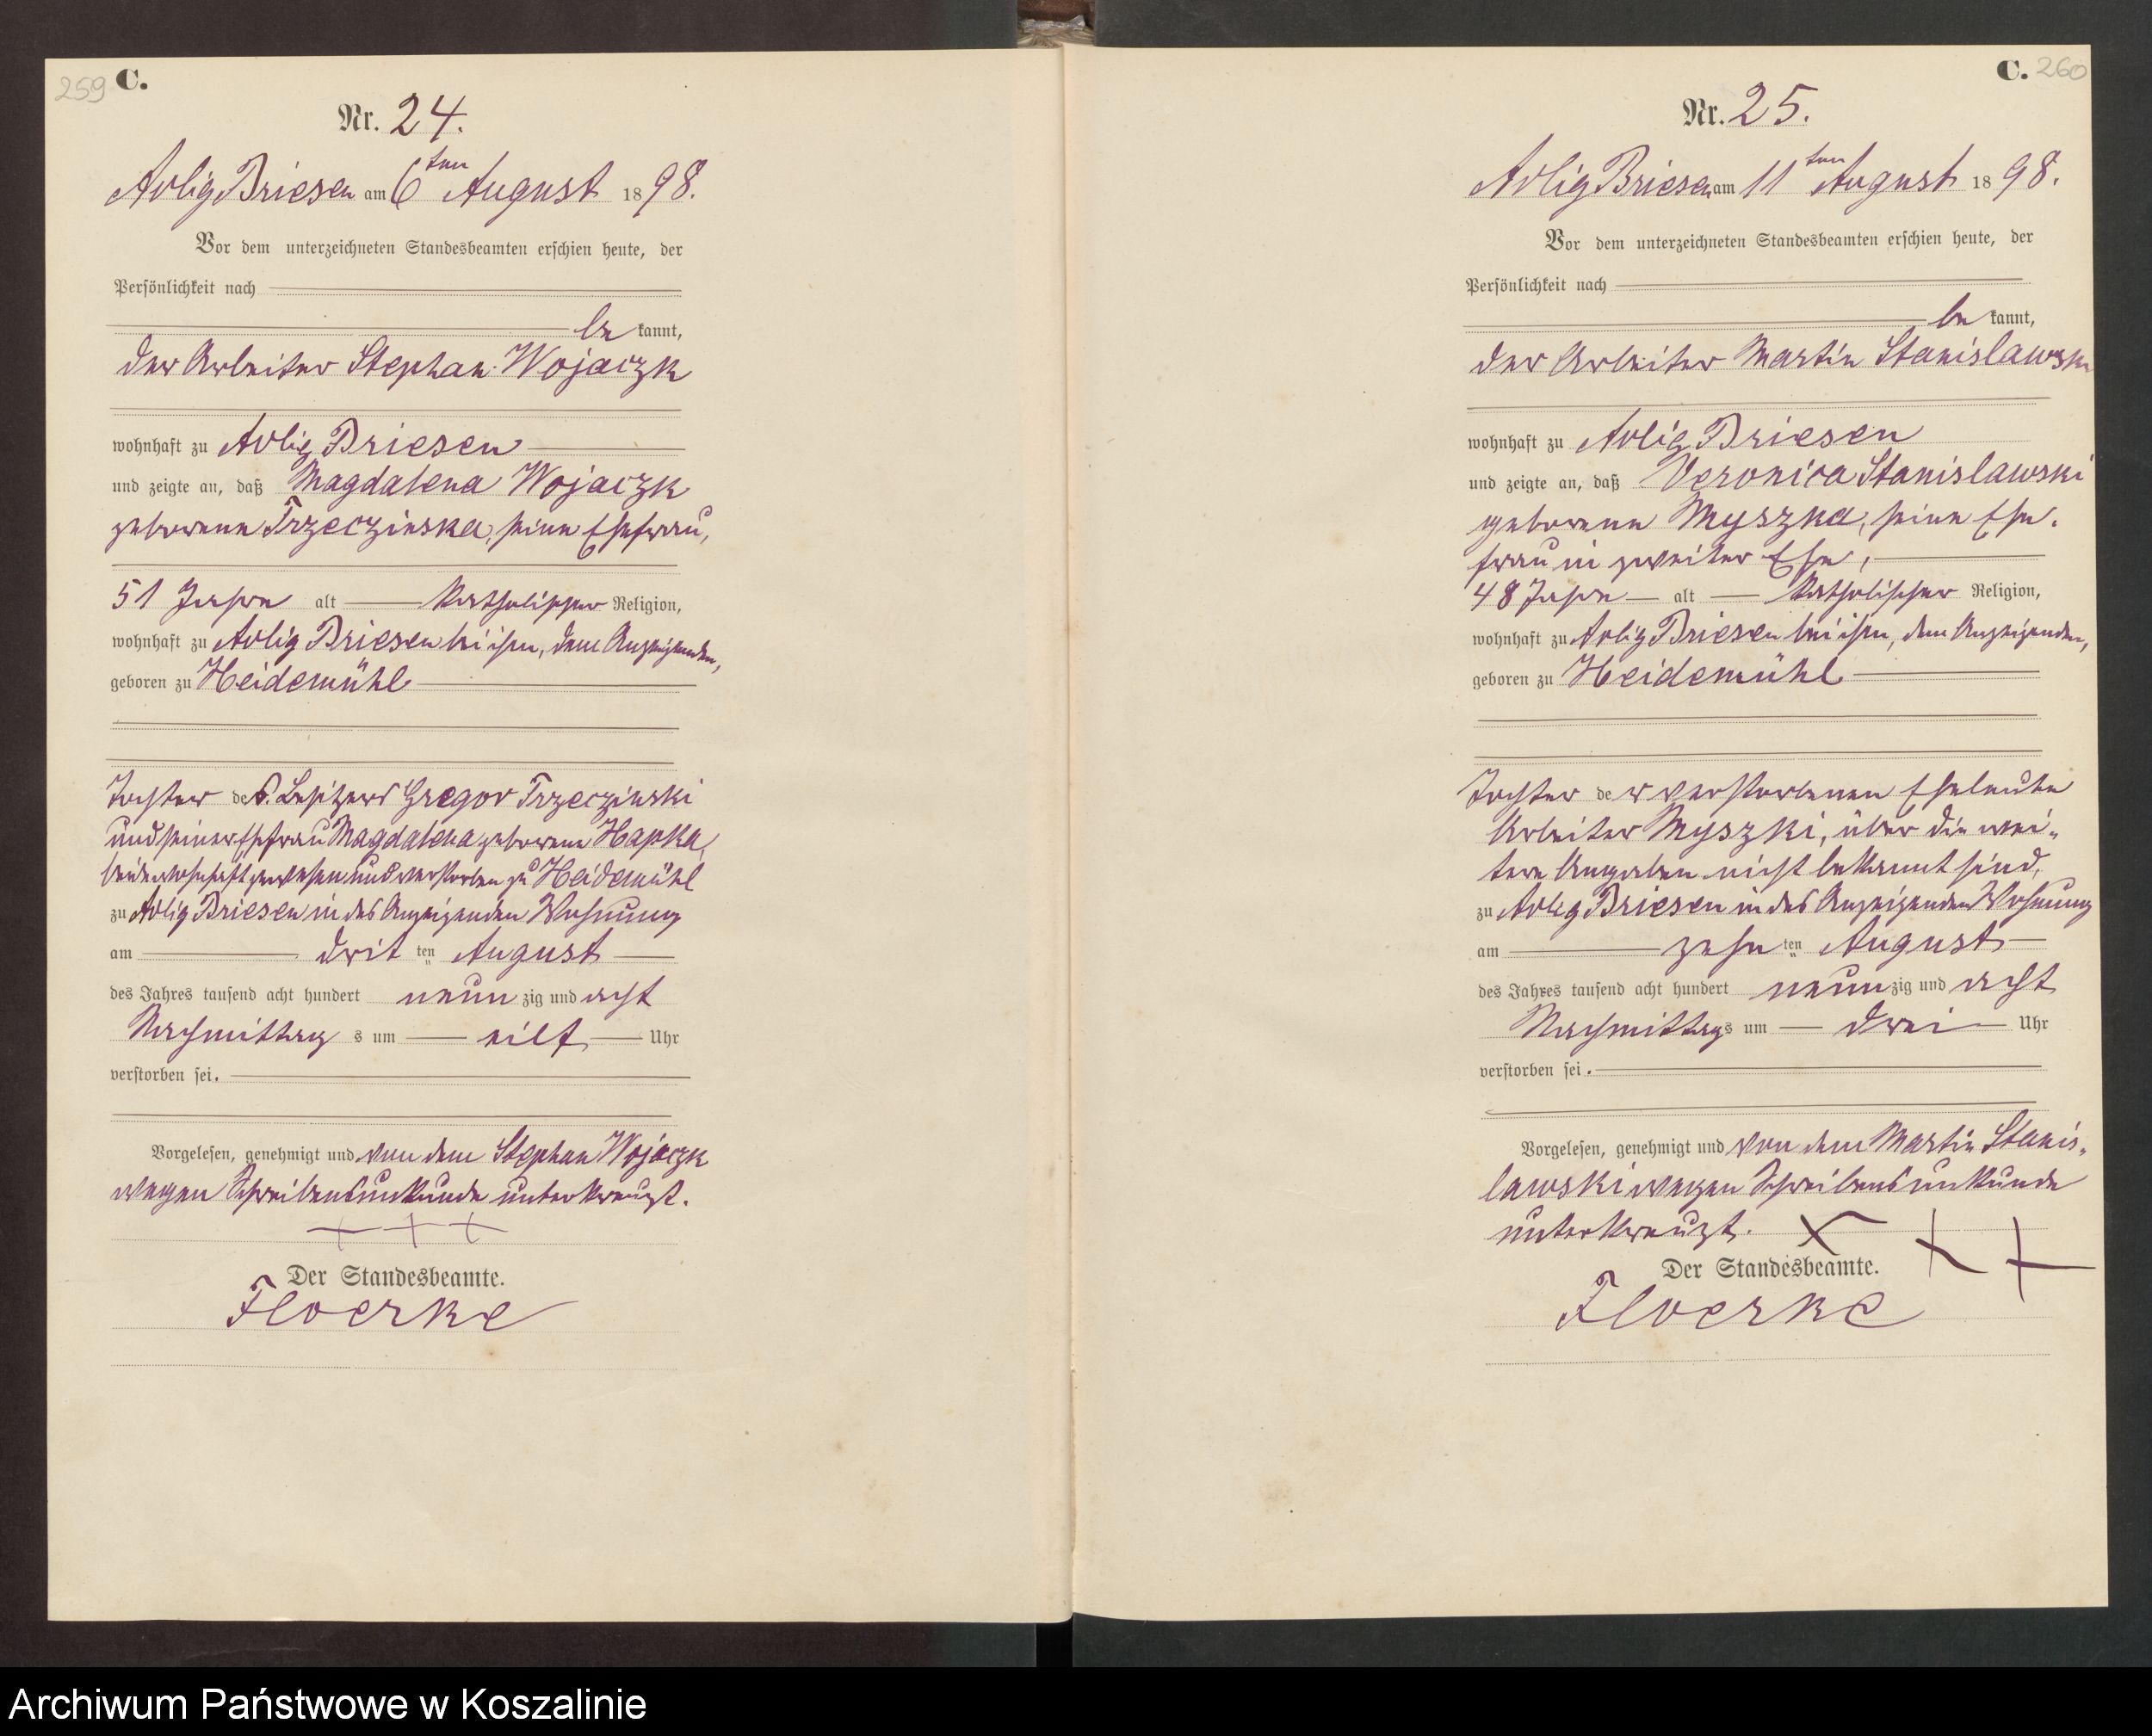 259 C.
Nr. 24.
Adlig Briesen am 6ten August 1898.
Vor dem unterzeichneten Standesbeamten erschien heute, der
Persönlichkeit nach
be kannt,
der Arbeiter Stephan Wojaczk
wohnhaft zu Adlig Briesen
und zeigte an, daß Magdalena Wojaczk
geborene Trzeczinska, seine Ehefrau,
51 Jahre alt katholischer Religion,
wohnhaft zu Adlig Briesen bei ihm, dem Anzeigenden,
geboren zu Heidemühl
Tochter des Besitzers Gregor Trzeczinski
und seiner Ehefrau Magdalena geborene Hapka,
beide wohnhaft gewesen und verstorben zu Heidemühl
zu Adlig Briesen in des Anzeigenden Wohnung
am drit ten August
des Jahres tausend acht hundert neun zig und acht
Nachmittag s um eilf Uhr
verstorben sei.
Vorgelesen, genehmigt und von dem Stephan Wojaczk
wegen Schreibensunkunde unterkreuzt.
+ + +
Der Standesbeamte.
Floerke
C. 260
Nr. 25.
Adlig Briesen am 11ten August 1898.
Vor dem unterzeichneten Standesbeamten erschien heute, der
Persönlichkeit nach
be kannt,
der Arbeiter Martin Stanislawski
wohnhaft zu Adlig Briesen
und zeigte an, daß Veronica Stanislawski
geborene Myszka, seine Ehe-
frau in zweiter Ehe,
48 Jahre alt katholischer Religion,
wohnhaft zu Adlig Briesen bei ihm, dem Anzeigenden,
geboren zu Heidemühl
Tochter der verstorbenen Eheleute
Arbeiter Myszki, über die wei-
tere Angaben nicht bekannt sind,
zu Adlig Briesen in des Anzeigenden Wohnung
am zehn ten August
des Jahres tausend acht hundert neun zig und acht
Nachmittag s um drei Uhr
verstorben sei.
Vorgelesen, genehmigt und von dem Martin Stanis-
lawski wegen Schreibensunkunde
unterkreuzt. + + +
Der Standesbeamte.
Floerke
Archiwum Państwowe w Koszalinie